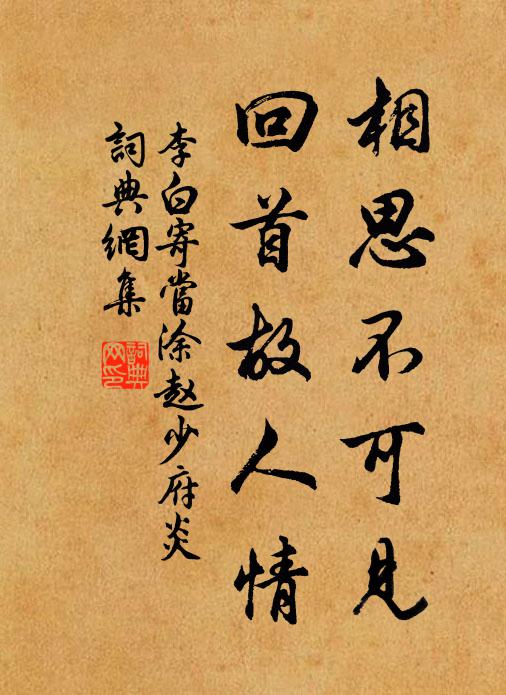 相思不可見
回首故人情
李白寄當涂赵少府炎
詞典網集
詞典網印